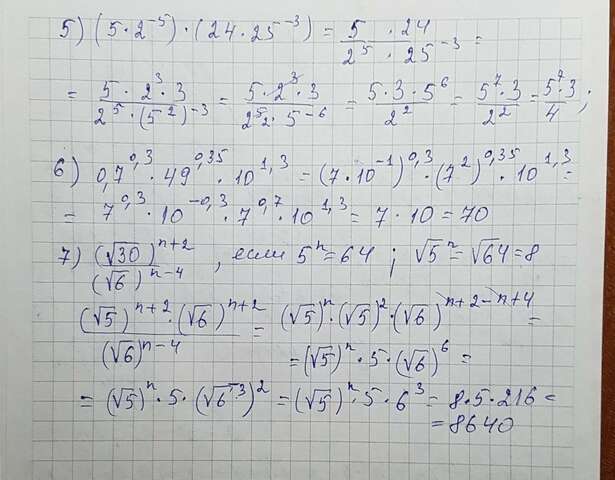 5) (5 · 2^-5) · (24 · 25^-3) = (5 · 24)/(2^5 · 25^-3) =
= (5 · 2^3 · 3)/(2^5 · (5^2)^-3) = (5 · 2^3 · 3)/(2^5 2 · 5^-6) = (5 · 3 · 5^6)/2^2 = (5^7 · 3)/2^2 = (5^7 · 3)/4 ;
6) 0,7^0,3 · 49^0,35 · 10^1,3 = (7 · 10^-1)^0,3 · (7^2)^0,35 · 10^1,3 =
= 7^0,3 · 10^-0,3 · 7^0,7 · 10^1,3 = 7 · 10 = 70
7) (√30)^n+2/(√6)^n-4 , если 5^n = 64 ; √5^n = √64 = 8
((√5)^n+2 · (√6)^n+2)/(√6)^n-4 = (√5)^n · (√5)^2 · (√6)^n+2-n+4 =
= (√5)^n · 5 · (√6)^6 =
= (√5)^n · 5 · (√6^3)^2 = (√5)^n · 5 · 6^3 = 8 · 5 · 216 =
= 8640